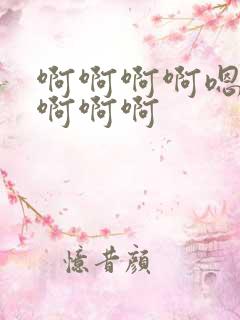 啊啊啊啊嗯
啊啊啊
憶昔顔